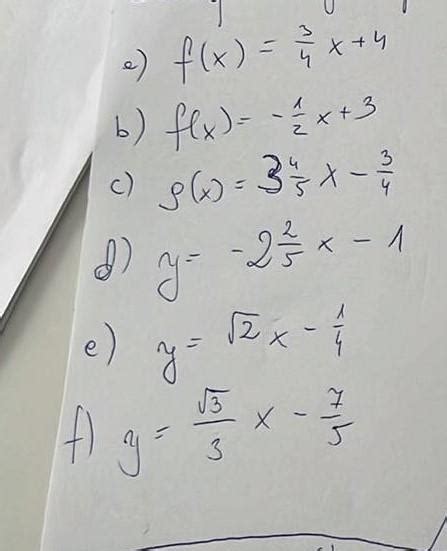 a) f(x) = 3/4 x + 4
b) f(x) = - 1/2 x + 3
c) g(x) = 3 4/5 x - 3/4
d) y = -2 2/5 x - 1
e) y = √2 x - 1/4
f) y = √3/3 x - 7/5